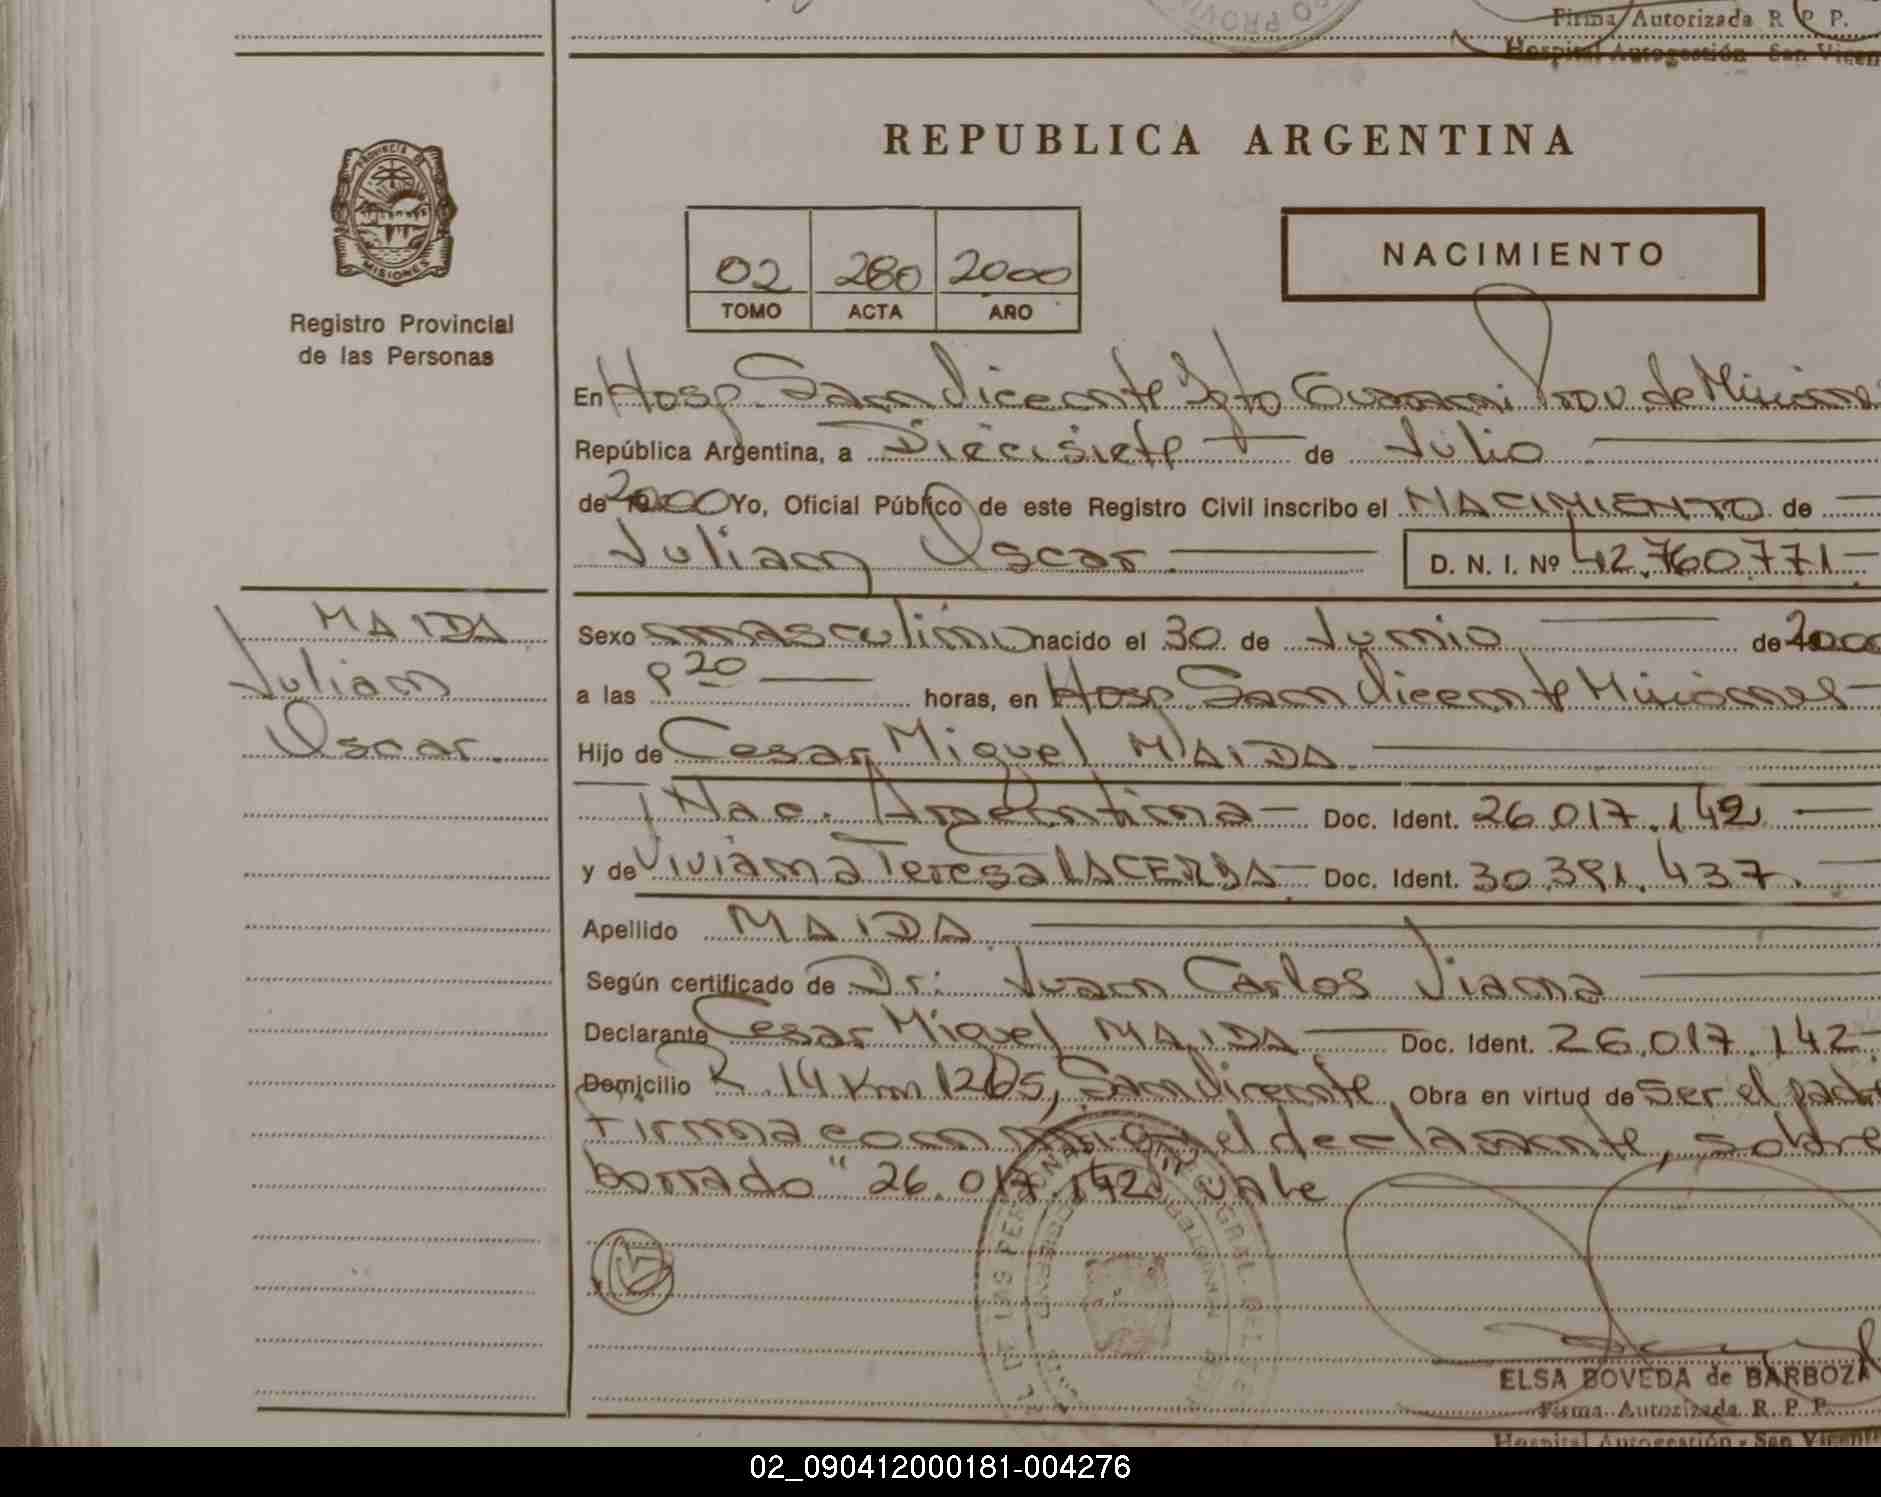 Firma Autorizada R. P. P.
Hospital Autogestión - San Vicen
PROVINCIA DE
MISIONES
Registro Provincial
de las Personas
REPUBLICA ARGENTINA
02 280 2000
TOMO ACTA AÑO
NACIMIENTO
En Hosp. San Vicente Dpto Guarani Prov. de Misiones
República Argentina, a Diecisiete de Julio
de 2000 Yo, Oficial Público de este Registro Civil inscribo el NACIMIENTO de
Julian Oscar. D. N. I. Nº 42.760.771
MAIDA
Julian
Oscar.
Sexo masculino nacido el 30 de Junio de 2000
a las 8 20 horas, en Hosp. San Vicente Misiones
Hijo de Cesar Miguel MAIDA
Nac. Argentina Doc. Ident. 26.017.142
y de Viviana Teresa LACERDA Doc. Ident. 30.391.437.
Apellido MAIDA
Según certificado de Dr: Juan Carlos Viana
Declarante Cesar Miguel MAIDA Doc. Ident. 26.017.142.
Domicilio R. 14 Km 1265, San Vicente Obra en virtud de ser el padre
Firma conmigo el declarante, sobre
borrado "26.017.142" vale
ELSA BOVEDA de BARBOZA
Firma Autorizada R. P. P.
Hospital Autogestión - San Vicente
02_090412000181-004276